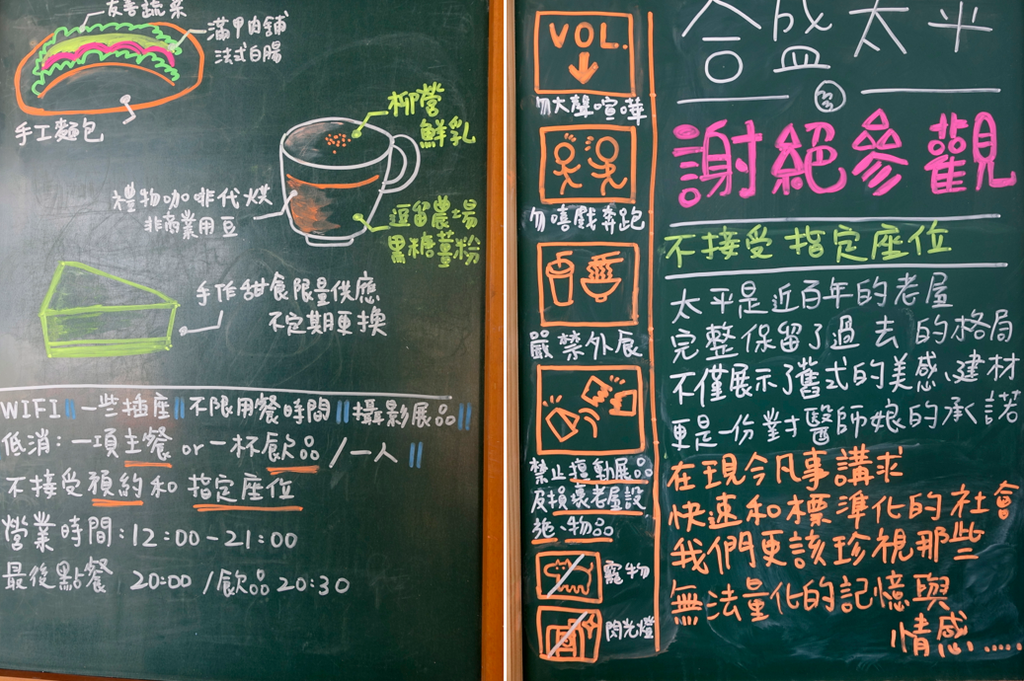 友善蔬菜
滿甲肉舖
法式白腸
手工麵包
柳營
鮮乳
禮物咖啡代烘
非商業用豆
逗留農場
黑糖薑粉
手作甜食限量供應
不定期更換
WIFI || 一些插座 || 不限用餐時間 || 攝影展品 ||
低消：一項主餐 or 一杯飲品 / 一人 ||
不接受預約和 指定座位
營業時間：12:00-21:00
最後點餐 20:00 / 飲品 20:30
VOL.
勿大聲喧嘩
勿嘻戲奔跑
嚴禁外食
禁止擅動展品
及損壞老屋設
施、物品
寵物
閃光燈
合盛太平
謝絕參觀
不接受指定座位
太平是近百年的老屋
完整保留了過去的格局
不僅展示了舊式的美感、建材
更是一份對醫師娘的承諾
在現今凡事講求
快速和標準化的社會
我們更該珍視那些
無法量化的記憶與
情感......